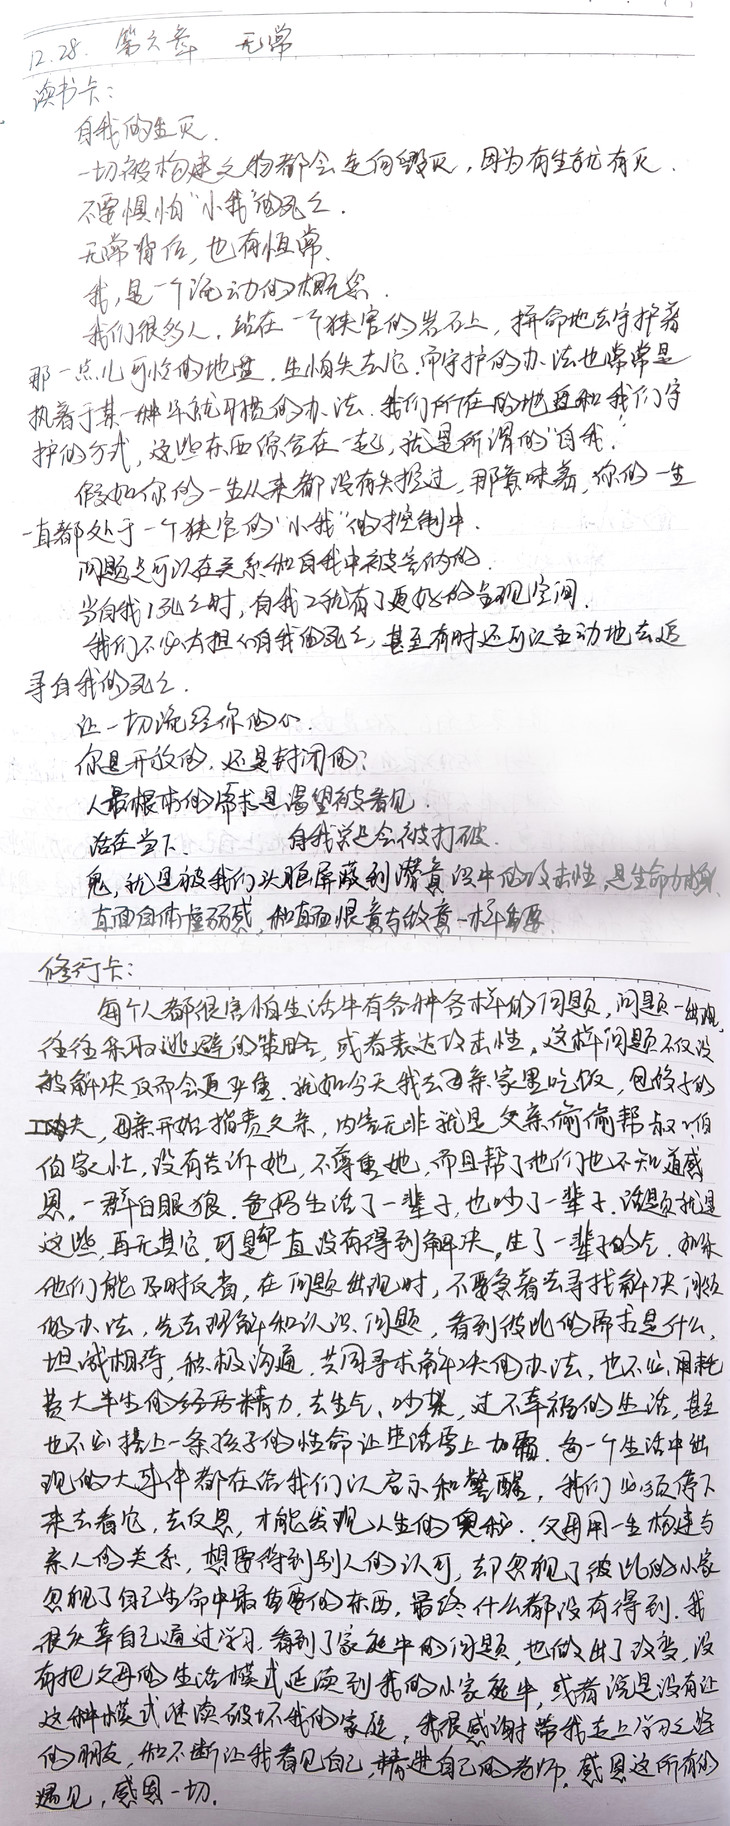 12.28. 第六章 无常
读书卡：
自我的生灭．
一切被构建之物都会走向毁灭，因为有生就有灭．
不要惧怕“小我”的死亡．
无常背后，也有恒常．
我，是一个流动的概念．
我们很多人，站在一个狭窄的岩石上，拼命地去守护着
那一点儿可怜的地盘．生怕失去它．而守护的办法也常常是
执着于某一种早就习惯的办法．我们所在的地盘和我们守
护的方式，这些东西综合在一起，就是所谓的“自我”．
假如你的一生从来都没有失控过，那意味着，你的一生
一直都处于一个狭窄的“小我”的控制中．
问题是可以在关系和自我中被容纳的．
当自我1死亡时，自我2就有了更好的呈现空间．
我们不必太担心自我的死亡，甚至有时还可以主动地去追
寻自我的死亡．
让一切流经你的心．
你是开放的，还是封闭的？
人最根本的需求是渴望被看见．
活在当下． 自我总是会被打破．
鬼，就是被我们头脑屏蔽到潜意识中的攻击性，是生命力
直面自体虚弱感，和直面恨意与敌意一样重要．
修行卡：
每个人都很害怕生活中有各种各样的问题，问题一出现，
往往采取逃避的策略，或者表达攻击性，这样问题不仅没
被解决反而会更严重．就如今天我去母亲家里吃饭，包饺子的
工夫，母亲开始指责父亲，内容无非就是父亲偷偷帮叔叔伯
伯家忙，没有告诉她，不尊重她，而且帮了他们也不知道感
恩，一群白眼狼．爸妈生活了一辈子，也吵了一辈子．话题就是
这些，再无其它，可是却一直没有得到解决，生了一辈子的气．如果
他们能及时反省，在问题出现时，不要急着去寻找解决问题
的办法，先去理解和认识问题，看到彼此的需求是什么，
坦诚相待，积极沟通，共同寻求解决的办法，也不必用耗
费大半生的经历精力，去生气、吵架，过不幸福的生活，甚至
也不必搭上一条孩子的性命让生活雪上加霜．每一个生活中出
现的大事件都在给我们以启示和警醒，我们必须停下
来去看它，去反思，才能发现人生的奥秘．父母用一生构建与
亲人的关系，想要得到别人的认可，却忽视了彼此的小家
忽视了自己生命中最重要的东西，最终什么都没有得到．我
很庆幸自己通过学习，看到了家庭中的问题，也做出了改变，没
有把父母的生活模式延续到我的小家庭中，或者说是没有让
这种模式继续破坏我的家庭，我很感谢带我走上学习之路
的朋友，和不断让我看见自己，精进自己的老师，感恩这所有的
遇见，感恩一切．